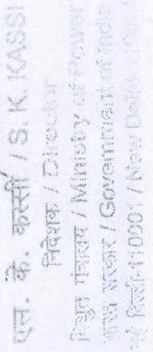 एस. के. कस्सी / S. K. KASSI
निदेशक / Director
विद्युत मंत्रालय / Ministry of Power
भारत सरकार / Government of India
नई दिल्ली-110001 / New Delhi